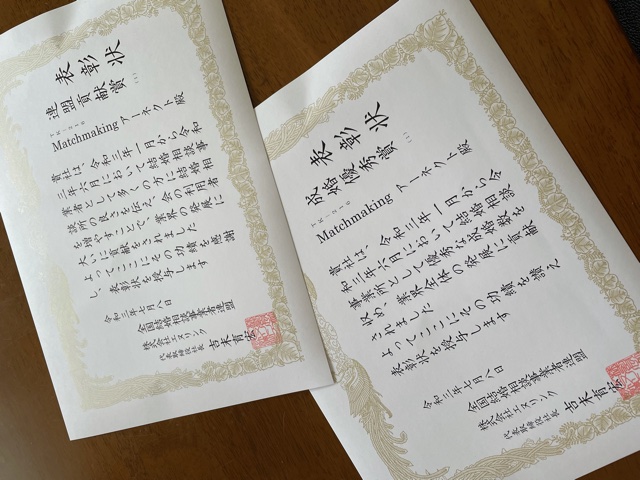 表彰状
連盟貢献賞
Matchmaking アーネクト 殿
貴社は、令和三年一月から令和
三年六月において結婚相談事
業者として多くの方に結婚相
談所の良さを伝え、会の利用者
を増やすことで、業界の発展に
大いに貢献をされました
よってここにその功績を感謝
し、表彰状を授与します
令和三年七月八日
全国結婚相談事業者連盟
株式会社エスリンク
代表取締役社長 吉末育宏
表彰状
成婚優秀賞
Matchmaking アーネクト 殿
貴社は、令和三年一月から令
和三年六月において結婚相談
事業所として優秀な成婚数を
収め、業界全体の発展に貢献
されました
よってここにその功績を讃え
表彰状を授与します
令和三年七月八日
全国結婚相談事業者連盟
株式会社エスリンク
代表取締役社長 吉末育宏